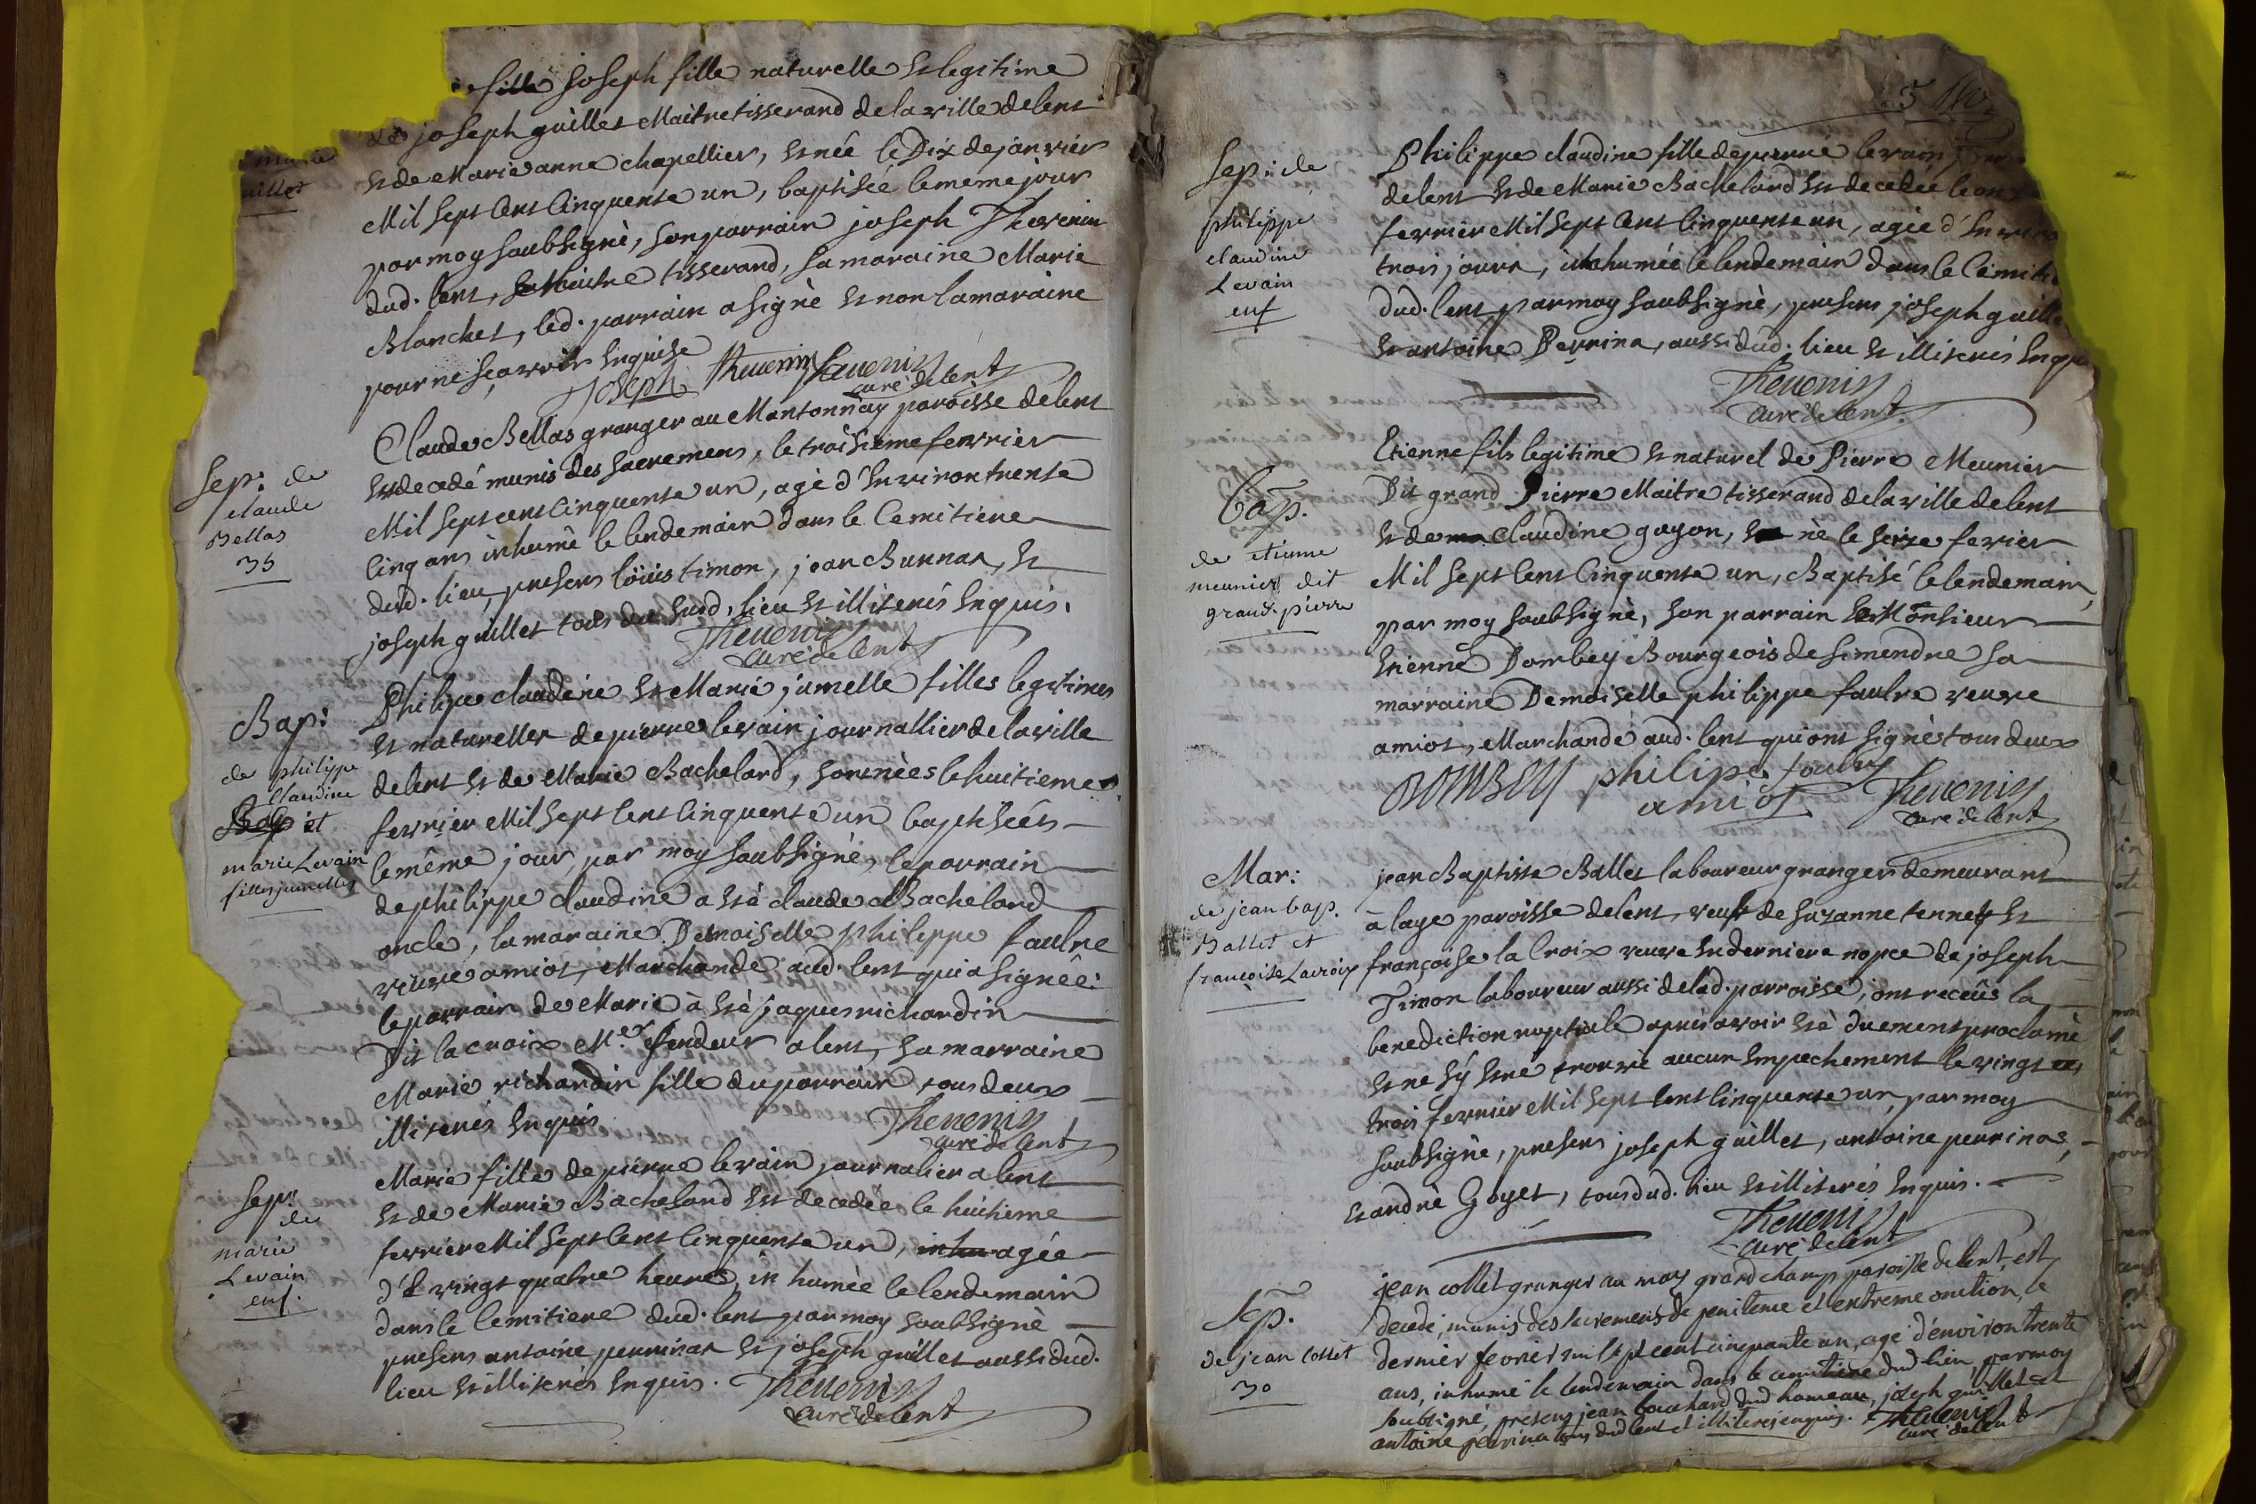 fille joseph fille naturelle et legitime
de joseph guillet Maitre tisserand de la ville de lent
et de Marie anne chapellier, est née le Dix de janvier
Mil sept Cent Cinquente un, baptisée le meme jour
par moy soubsigné, son parrain joseph Thevenin
dud. lent, Maitre tisserand, sa maraine Marie
Blanchet, led. parrain a signé et non la maraine
pour ne sçavoir enquise
Joseph Thevenin Thevenin
curé de lent
uillet
Sep: de
claude
Bellas
35
Claude Bellas granger au Montonnay paroisse de lent
est decedé munis des sacremens, le troisieme fevrier
Mil sept cent Cinquente un, agé d'environ trente
Cinq ans inhumé le lendemain dans le Cemitiere
dud. lieu, presens loüis timon, jean Bunnar, et
joseph guillet tous du sud. lieu et illiterés enquis.
Thevenin
curé de lent
Bap:
de philippe
Claudine
Bap et
marie Levain
filles jumelles
Philippe claudine et Marie jumelle filles legitimes
et naturelles de pierre levain journallier de la ville
de lent et de Marie Bachelard, sont nées le huitieme
fevrier Mil sept Cent Cinquente un baptisées
le même jour, par moy soubsigné, le parrain
de philippe claudine a eté claude Bachelard
oncle, la maraine Demoiselle philippe faulre
veuve amiot, Marchande aud. lent qui a signée:
le parrain de Marie à eté jaques richardin
Dit la croix M.er fendeur a lent, sa marraine
Marie richardin fille du parrain tous deux
illiterés enquis
Thevenin
curé de lent
Sep:
de
marie
Levain
enf.
Marie fille de pierre levain journalier a lent
et de Marie Bachelard est decedée le huitieme
fevrier Mil sept Cent Cinquente un, inhu agée
d'e vingt quatre heures, in humée le lendemain
dans le Cemitiere dud. lent par moy soubsigné
presens antoine perrinar et joseph guillet aussi dud.
lieu et illiterés enquis.
Thevenin
curé de lent
Sep: de
philippe
claudine
Levain
enf
Philippe claudine fille de pierre levain
de lent et de Marie Bachelard est decedée le
fevrier Mil sept Cent Cinquente un, agée d'
trois jours, inhumée le lendemain dans le Cemiti
dud. lent par moy soubsigné, presens joseph guille
et antoine Perrina, aussi dud. lieu et illiterés enqu
Thevenin
curé de lent.
Bap.
de etienne
meunier dit
grand. pierre
Etienne fils legitime et naturel de Pierre Meunier
Dit grand Pierre Maitre tisserand de la ville de lent
et de Claudine gayon, né le seize fevrier
Mil sept Cent Cinquente un, Baptisé le lendemain,
par moy soubsigné, son parrain Monsieur
Etienne Dombey Bourgeois de simendre sa
marraine Demoiselle philippe faulre veuve
amiot, Marchande aud. lent qui ont signés tous deux
DOMBEY philipe faulre
amiot
Thevenin
curé de lent
Mar:
de jean bap.
Ballet et
francoise Lacroix
jean Baptiste Ballet laboureur granger demeurant
à laye paroisse de lent, veuf de suzanne tennet et
françoise la Croix veuve en derniere nopce de joseph
Timon laboureur aussi de lad. parroisse, ont receüs la
benediction nuptiale aprés avoir eté duement proclamé
et ne sÿ etné trouvé aucun Empechement le vingt
trois fevrier Mil sept Cent Cinquente un, par moy
soubsigné, presens joseph guillet, antoine perrinas,
et andré Goyet, tous dud. lieu et illiterés enquis.
Thevenin
curé de lent
Sep.
de jean Collet
30
jean collet granger au may grand champ paroisse de lent, est
decedé, munis des sacremens de penitence et extreme onction, le
dernier fevrier mil sept cent cinquante un, agé d'environ trente
ans, inhumé le lendemain dans le cemitiere dud lieu, par moy
soubsigné, presens jean bouchard dud hameau, joseph guillet et
antoine perrina tous dud lent et illiteres enquis. Thevenin
curé de lent